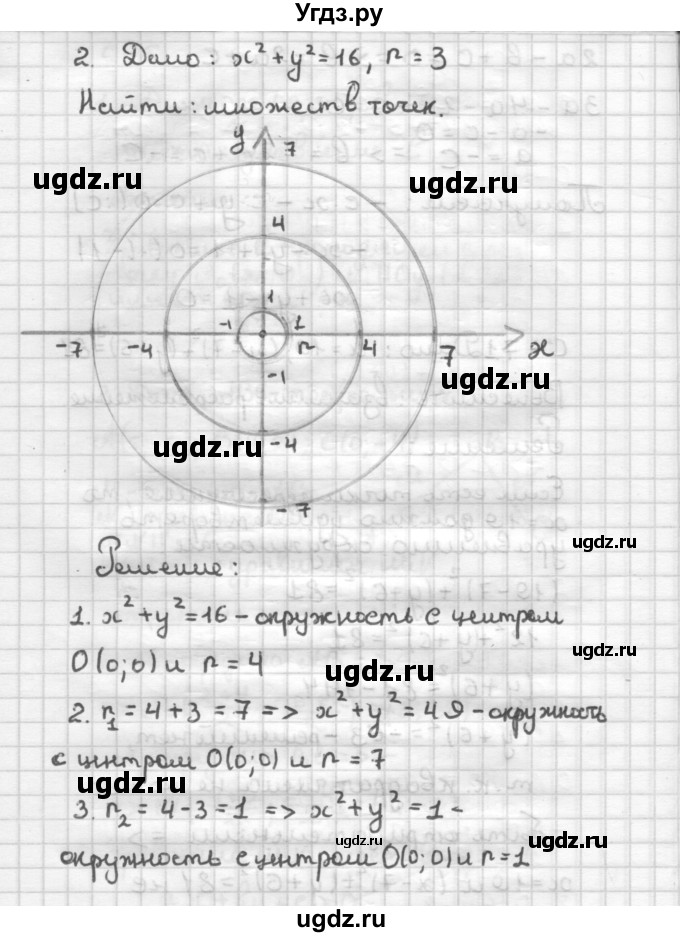 Угдз.ру
2. Дано: x²+y²=16, r=3
Найти: множеств точек.
y 7
ugdz.ru
ugdz.ru
4
1
-1 1
-7 -4 r 4 7 x
-1
ugdz.ru
ugdz.ru
-4
-7
ugdz.ru
Решение:
1. x²+y²=16 - окружность с центром
O(0;0) и r=4
ugdz.ru
2. r₁=4+3=7 => x²+y²=49 - окружность
с центром O(0;0) и r=7
ugdz.ru
3. r₂=4-3=1 => x²+y²=1 -
ugdz.ru
окружность с центром O(0;0) и r=1
ugdz.ru